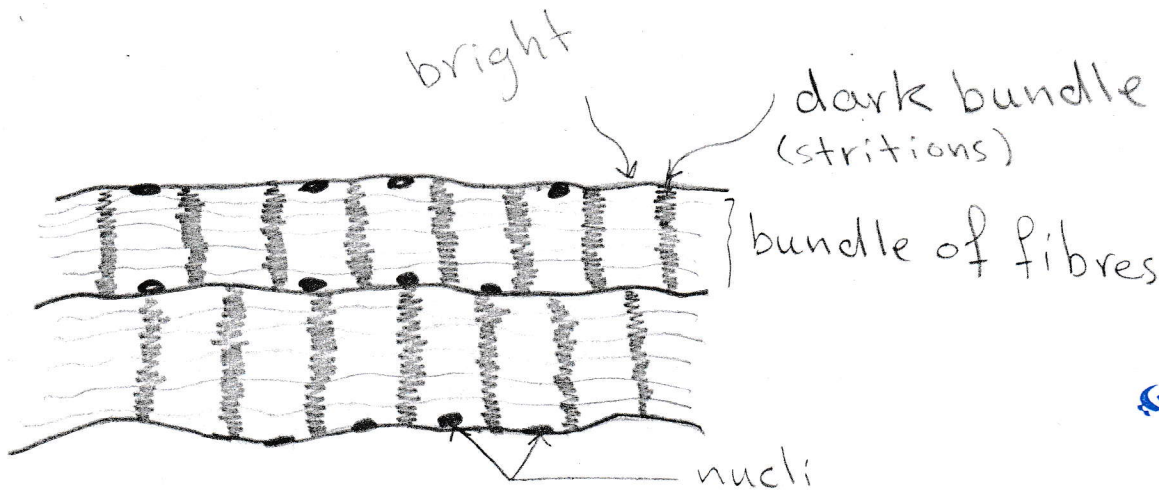 bright
dark bundle
(stritions)
bundle of fibres
nucli